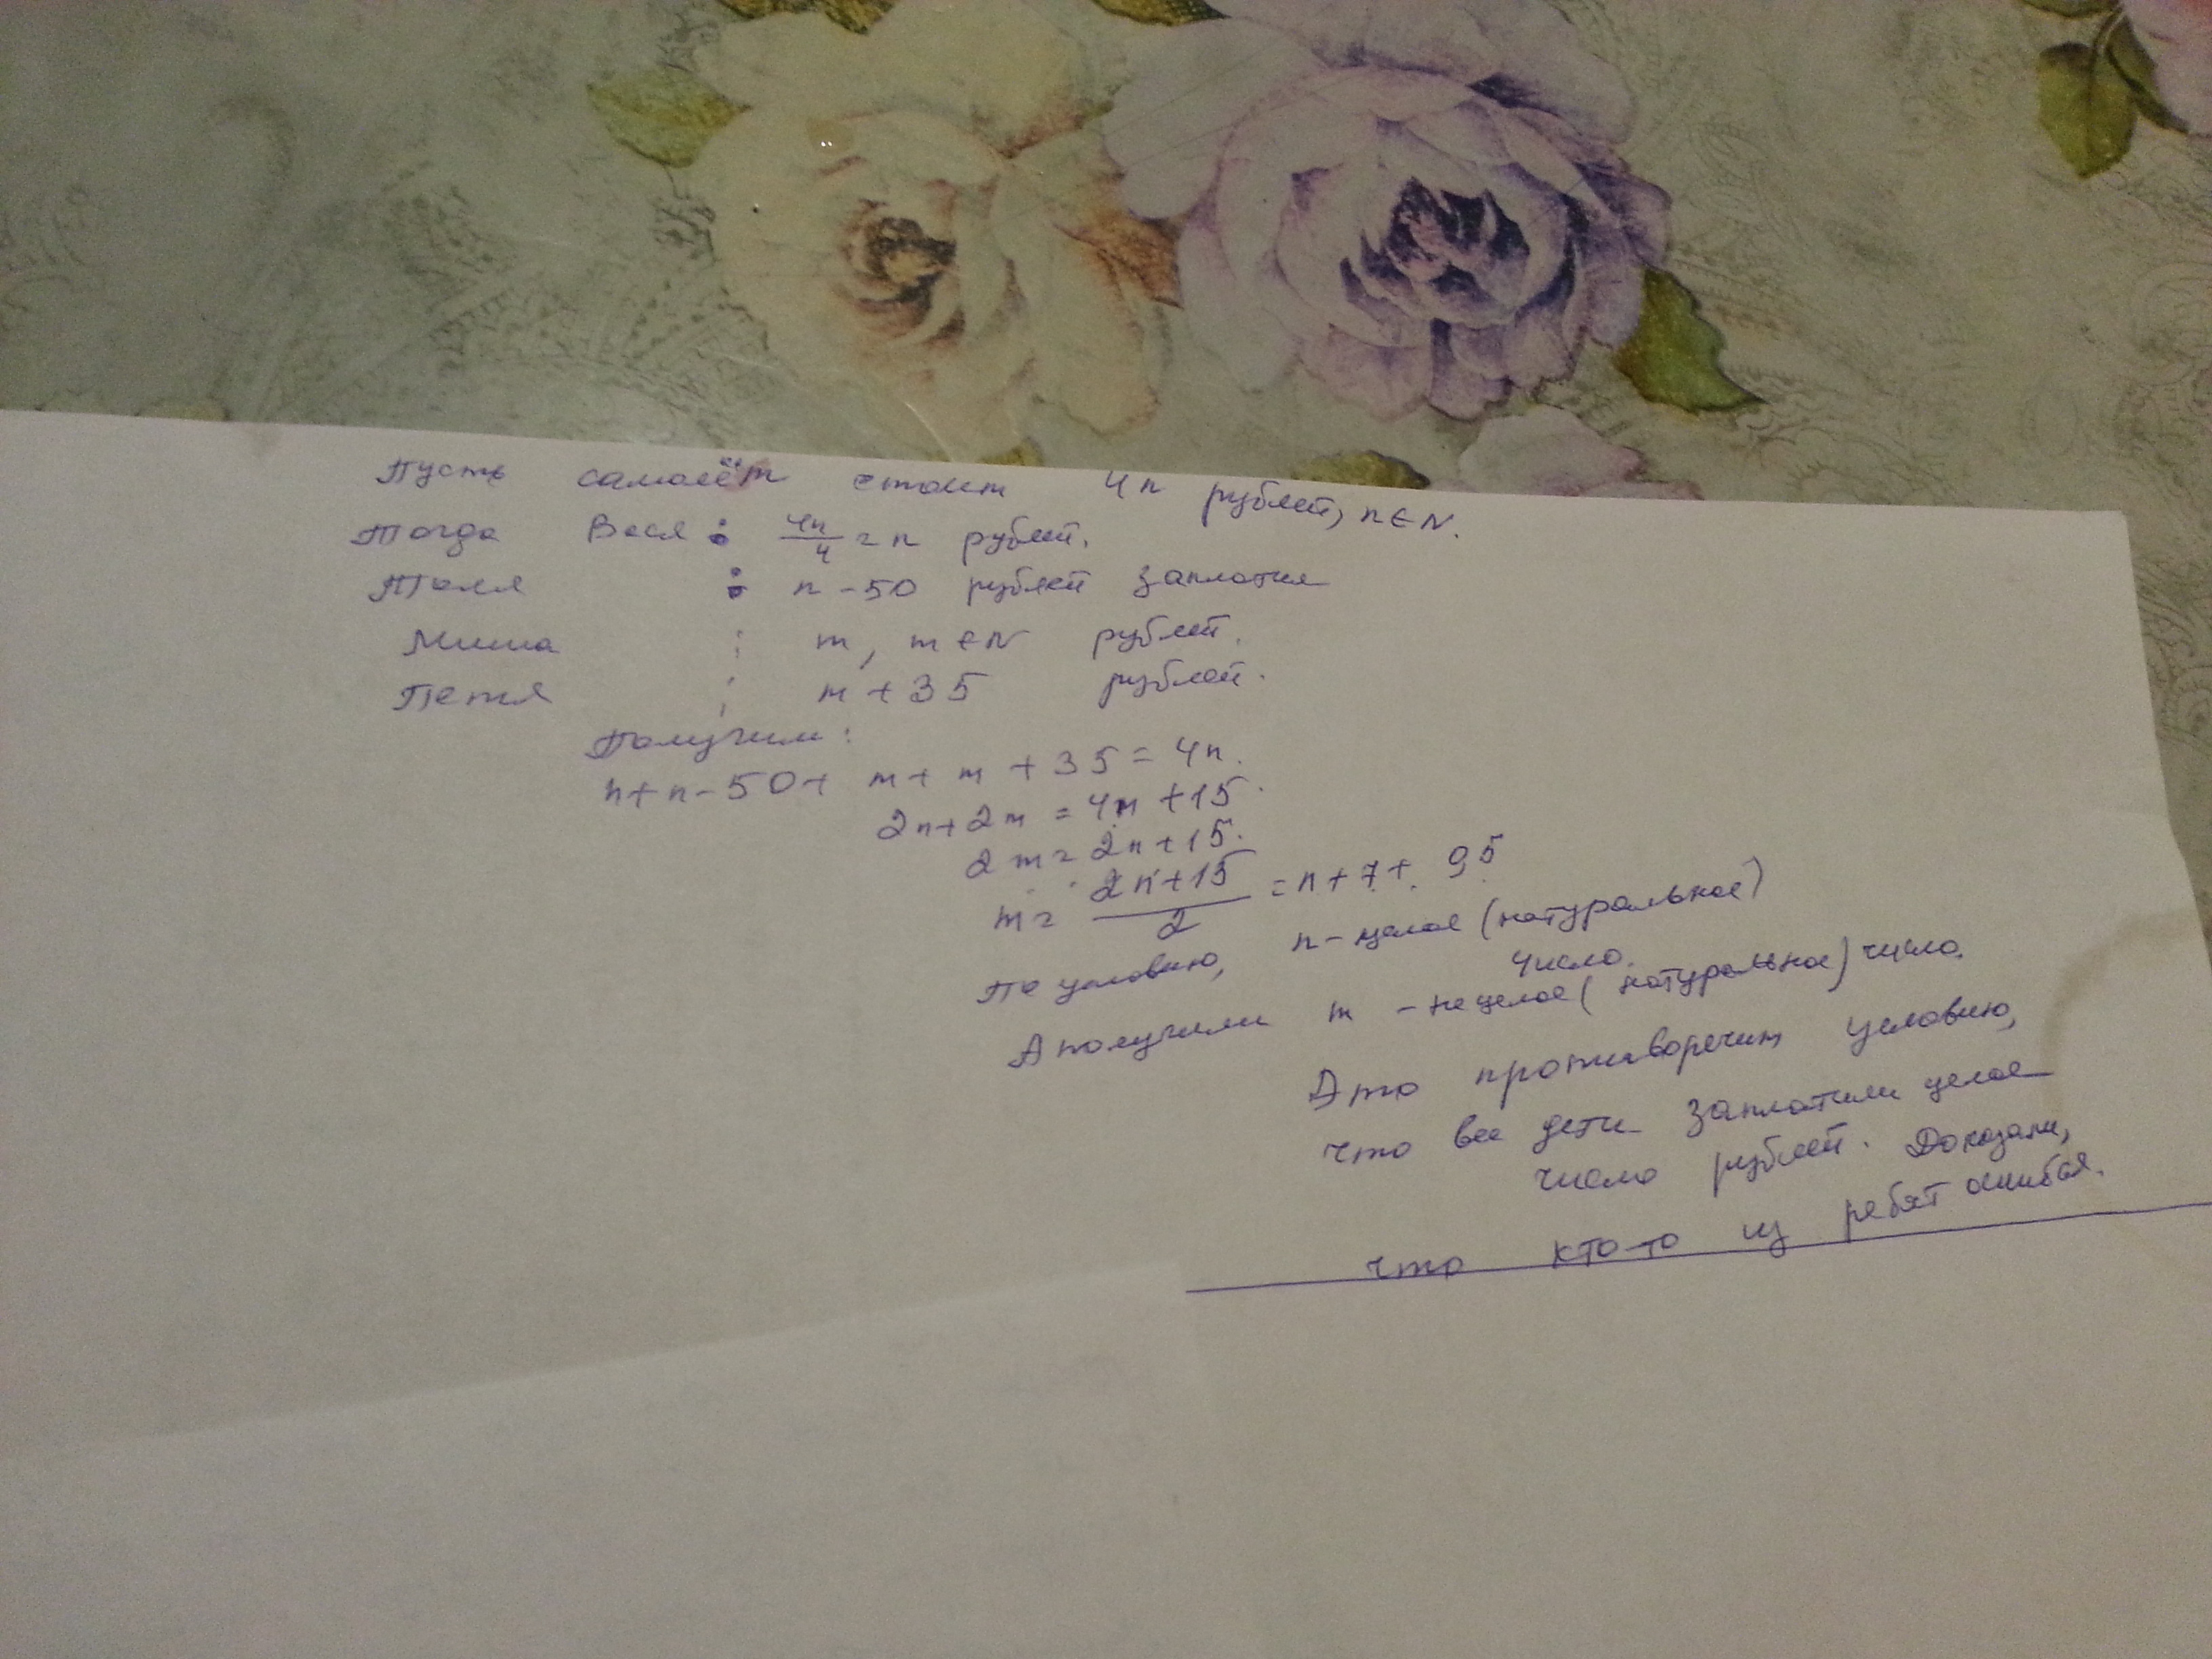 Пусть самолёт стоит 4n рублей, n∈N.
Тогда Вася : 4n/4 = n рублей.
Толя : n-50 рублей заплатил
Миша : m, m∈N рублей.
Петя : m+35 рублей.
Получим:
n+n-50+m+m+35=4n.
2n+2m=4n+15.
2m=2n+15.
m=(2n+15)/2=n+7+0,5
По условию, n-целое (натуральное)
число.
А получили m-не целое (натуральное) число.
Это противоречит условию,
что все дети заплатили целое
число рублей. Доказали,
что кто-то из ребят ошибся.